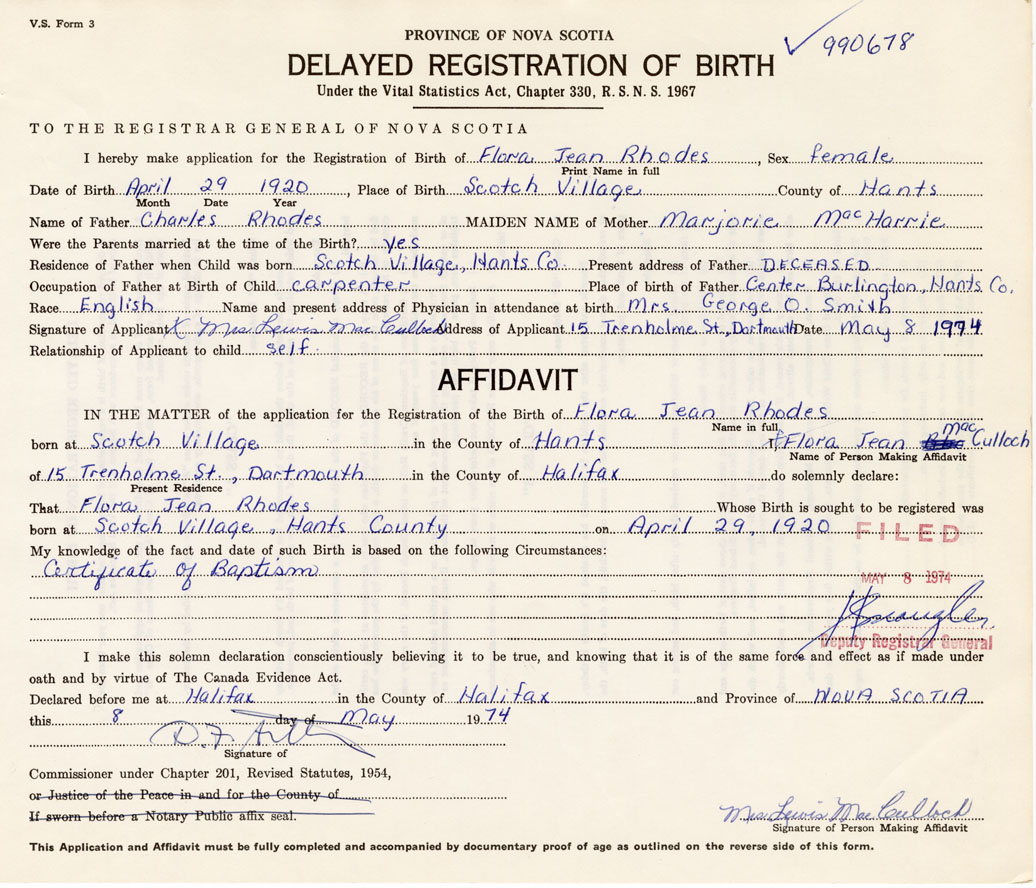 V.S. Form 3
990678
PROVINCE OF NOVA SCOTIA
DELAYED REGISTRATION OF BIRTH
Under the Vital Statistics Act, Chapter 330, R.S.N.S. 1967
TO THE REGISTRAR GENERAL OF NOVA SCOTIA
I hereby make application for the Registration of Birth of Flora Jean Rhodes, Sex female
Print Name in full
Date of Birth April 29 1920, Place of Birth Scotch Village County of Hants
Month Date Year
Name of Father Charles Rhodes MAIDEN NAME of Mother Marjorie MacHarrie
Were the Parents married at the time of the Birth? yes
Residence of Father when Child was born Scotch Village, Hants Co. Present address of Father DECEASED
Occupation of Father at Birth of Child carpenter Place of birth of Father Center Burlington, Hants Co.
Race English Name and present address of Physician in attendance at birth Mrs. George O. Smith
Signature of Applicant X Mrs Lewis MacCulloch Address of Applicant 15 Trenholme St., Dartmouth Date May 8 1974
Relationship of Applicant to child self
AFFIDAVIT
IN THE MATTER of the application for the Registration of the Birth of Flora Jean Rhodes
Name in full
born at Scotch Village in the County of Hants I, Flora Jean MacCulloch
Name of Person Making Affidavit
of 15 Trenholme St., Dartmouth in the County of Halifax do solemnly declare:
Present Residence
That Flora Jean Rhodes Whose Birth is sought to be registered was
born at Scotch Village, Hants County on April 29, 1920
FILED
My knowledge of the fact and date of such Birth is based on the following Circumstances:
Certificate of Baptism
MAY 8 1974
Deputy Registrar General
I make this solemn declaration conscientiously believing it to be true, and knowing that it is of the same force and effect as if made under
oath and by virtue of The Canada Evidence Act.
Declared before me at Halifax in the County of Halifax and Province of NOVA SCOTIA
this 8 day of May 1974
Signature of
Commissioner under Chapter 201, Revised Statutes, 1954,
or Justice of the Peace in and for the County of
If sworn before a Notary Public affix seal.
Mrs Lewis MacCulloch
Signature of Person Making Affidavit
This Application and Affidavit must be fully completed and accompanied by documentary proof of age as outlined on the reverse side of this form.